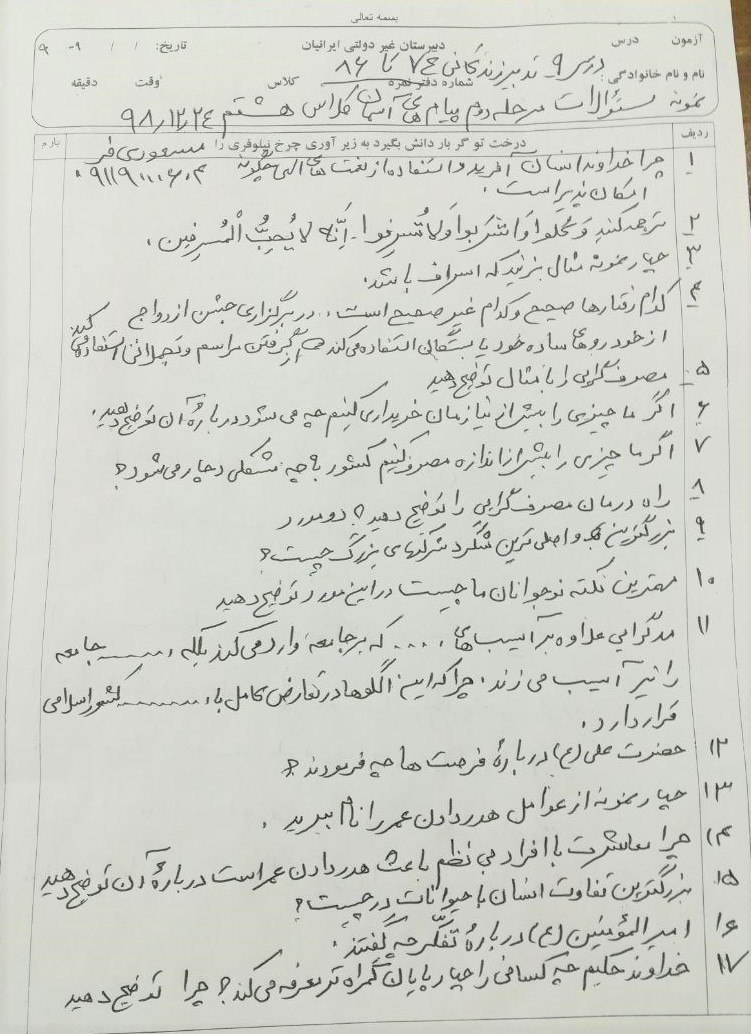 بسمه تعالی
آزمون درس دبیرستان غیر دولتی ایرانیان تاریخ: / / ۹-
درس ۹ تدبیر زندگانی ص ۷ تا ۸۶
نام و نام خانوادگی: شماره دفتر نمره کلاس وقت دقیقه
نمونه سئوالات مرحله دوم پیام های آسمان کلاس هشتم ۹۸/۱۲/۲۴
ردیف درخت تو گر بار دانش بگیرد به زیر آوری چرخ نیلوفری را بارم
۱ چرا خداوند انسان آفرید و استفاده از نعمت های الهی چگونه
امکان پذیر است.
۲ ترجمه کنید وَ کُلوا وَ اشرَبوا وَلا تُسرِفوا. اِنَّهُ لا یُحِبُّ الْمُسرِفین.
۳ چهار نمونه مثال بزنید که اسراف باشد.
۴ کدام رفتارها صحیح و کدام غیر صحیح است. در برگزاری جشن ازدواج
از خودروهای ساده خود یا بستگان استفاده می کند گرفتن مراسم و تجملاتی استفاده می کند
۵ مصرف گرایی را با مثال توضیح دهید
۶ اگر ما چیزی را بیش از نیازمان خریداری کنیم چه می شود درباره آن توضیح دهید.
۷ اگر ما چیزی را بیش از اندازه مصرف کنیم کشور با چه مشکلی دچار می شود؟
۸ راه درمان مصرف گرایی را توضیح دهید؟ دو مورد
۹ بزرگترین و اصلی ترین شگرد شرکتهای بزرگ چیست؟
۱۰ مهمترین نکته نوجوانان ما چیست در این مورد توضیح دهید
۱۱ مدگرایی علاوه بر آسیب های .... که بر جامعه وارد می کند بلکه ........ جامعه
را نیز آسیب می زند. چرا که این الگوها در تعارض کامل با ........ کشور اسلامی
قرار دارد.
۱۲ حضرت علی (ع) درباره فرصت ها چه فرمودند؟
۱۳ چهار نمونه از عوامل هدر دادن عمر را نام ببرید.
۱۴ چرا معاشرت با افراد بی نظم باعث هدر دادن عمر است درباره آن توضیح دهید
۱۵ بزرگترین تفاوت انسان با حیوانات در چیست؟
۱۶ امیر المؤمنین (ع) درباره تفکّر چه گفتند.
۱۷ خداوند حکیم چه کسانی را چهارپایان گمراه تر معرفی می کند؟ چرا توضیح دهید